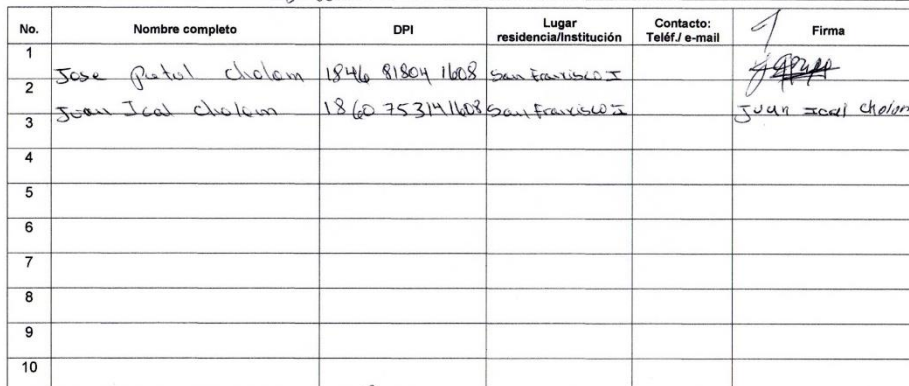 No. Nombre completo DPI Lugar residencia/Institución Contacto: Teléf./ e-mail Firma
1
Jose Putul cholom 1846 81804 1608 San Francisco I
2
Juan Ical cholom 1860 75314 1608 San Francisco I Juan Ical cholom
3
4
5
6
7
8
9
10